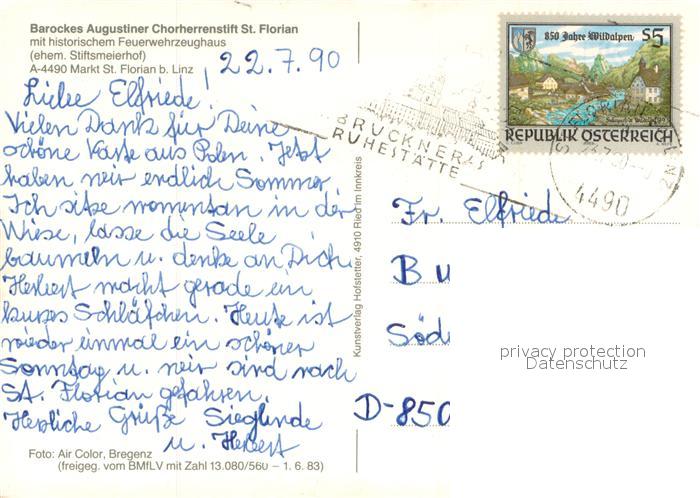 Barockes Augustiner Chorherrenstift St. Florian
mit historischem Feuerwehrzeughaus
(ehem. Stiftsmeierhof)
A-4490 Markt St. Florian b. Linz
22.7.90
Liebe Elfriede!
Vielen Dank für Deine
schöne Karte aus Polen. Jetzt
haben wir endlich Sommer
Ich sitze momentan in der
Wiese, lasse die Seele
baumeln u. denke an Dich.
Herbert macht gerade ein
kurzes Schläfchen. Heute ist
wieder einmal ein schöner
Sonntag u. wir sind nach
St. Florian gefahren.
Herzliche Grüße Sieglinde
u. Herbert
Foto: Air Color, Bregenz
(freigeg. vom BMfLV mit Zahl 13.080/560 – 1. 6. 83)
Kunstverlag Hofstetter, 4910 Ried im Innkreis
850 Jahre Wildalpen
S5
REPUBLIK ÖSTERREICH
BRUCKNERS
RUHESTÄTTE
4490
Fr. Elfriede
B
Söd
D-850
privacy protection
Datenschutz